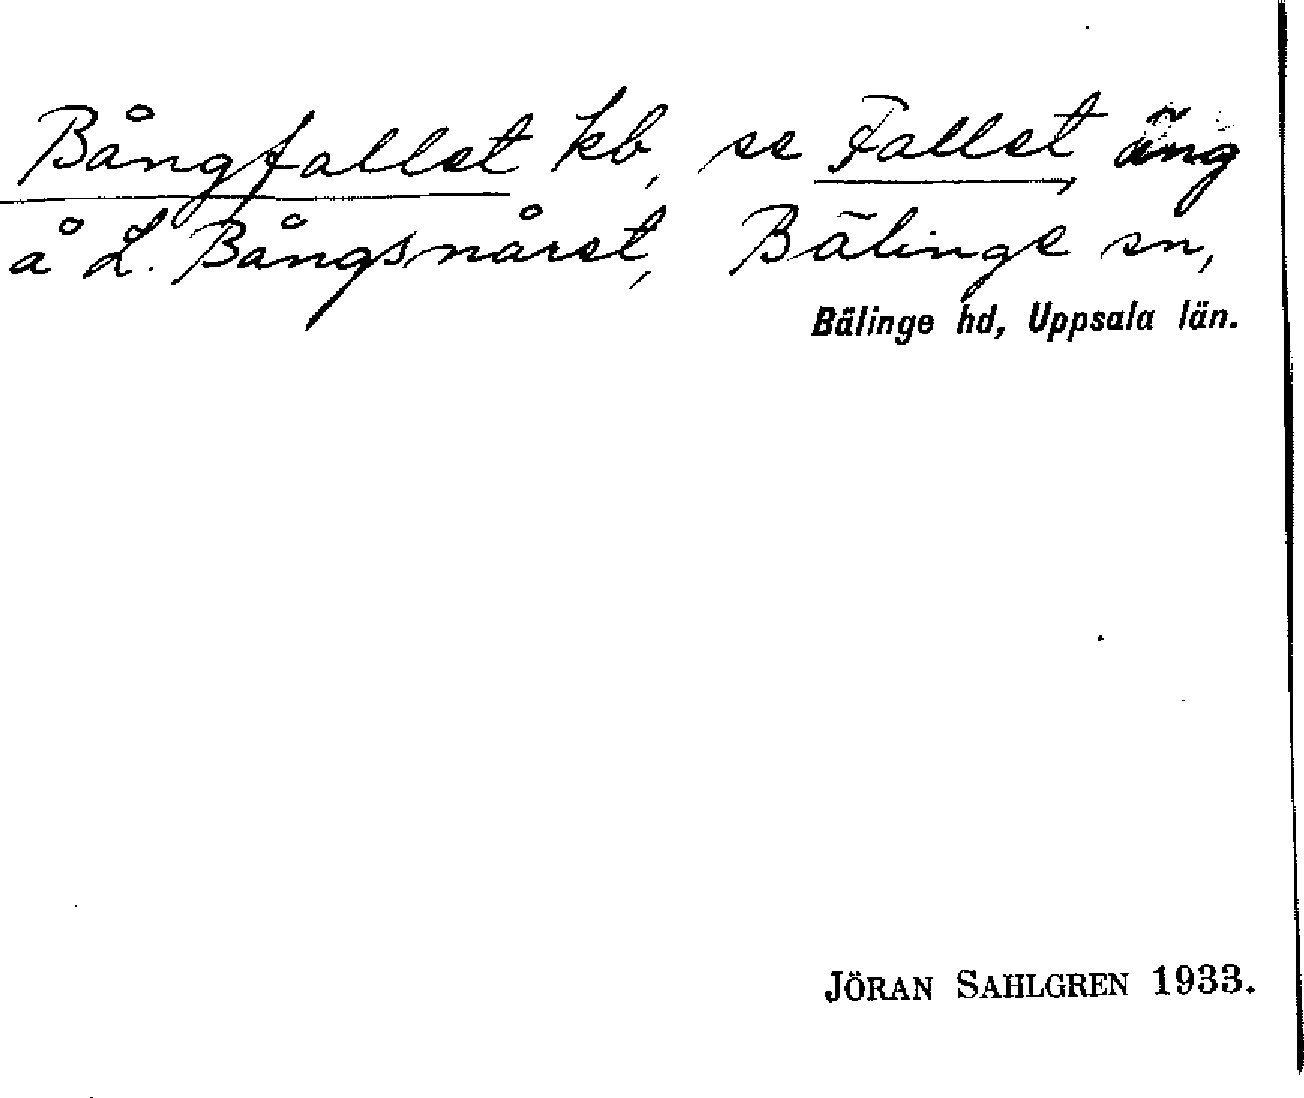 Bångfallet kb, se Fallet, äng
å L. Bångsnåret, Bälinge sn,
Bälinge hd, Uppsala län.
JÖRAN SAHLGREN 1933.